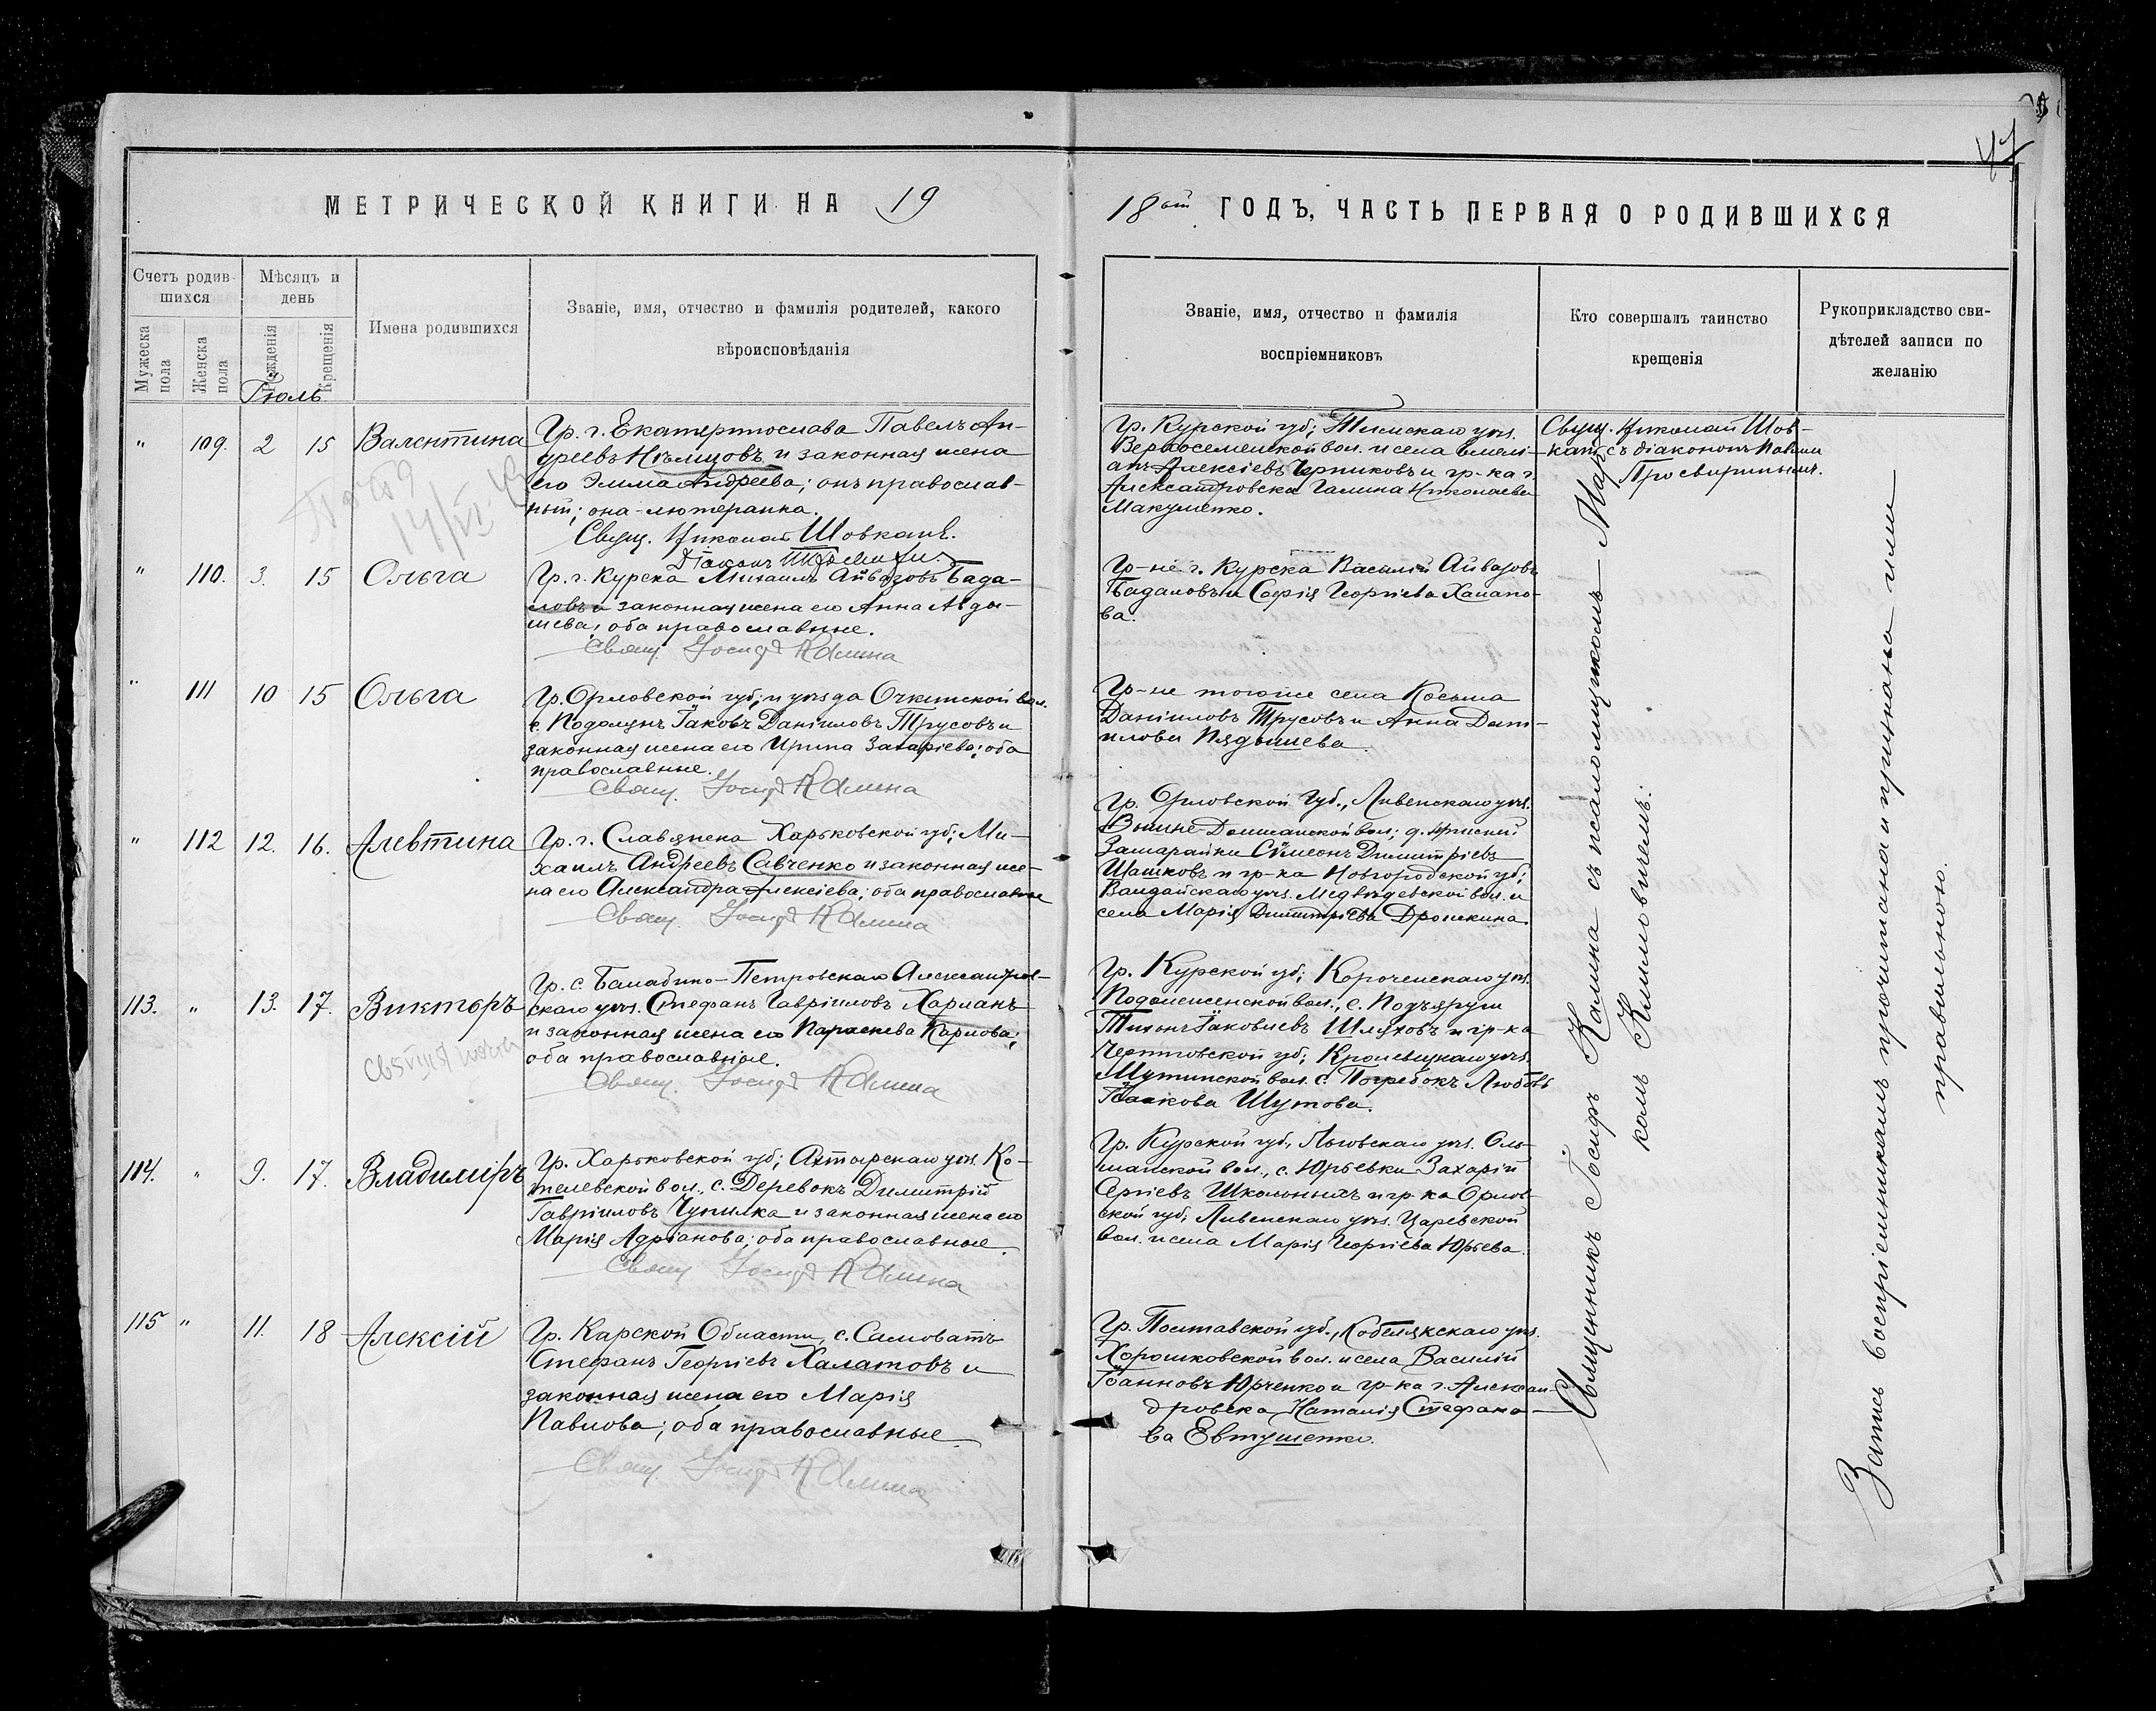 47
МЕТРИЧЕСКОЙ КНИГИ НА 19
18ый ГОДЪ, ЧАСТЬ ПЕРВАЯ О РОДИВШИХСЯ
Счетъ родив-
шихся
Мѣсяцъ и
день
Мужеска
пола
Женска
пола
Рожденія
Крещенія
Имена родившихся
Званіе, имя, отчество и фамилія родителей, какого
вѣроисповѣданія
Званіе, имя, отчество и фамилія
воспріемниковъ
Кто совершалъ таинство
крещенія
Рукоприкладство сви-
дѣтелей записи по
желанію
Іюль
" 109. 2 15 Валентина
Гр. г. Екатеринослава Павелъ Ан-
дреевъ Нѣмцовъ и законная жена
его Эмма Андреева; онъ православ-
ный; она-лютеранка.
Свящ. Николай Шовкань.
Діаконъ
14/VI
Гр. Курской губ; Тимскаго уѣз.
Верхосеменской вол. и села Емели-
анъ Алексіевъ Черниковъ и гр-ка г.
Александровска Галина Николаева
Макушенко.
Свящ. Николай Шов-
кань съ діакономъ
Просвирнинымъ.
" 110. 3. 15 Ольга
Гр. г. Курска Михаилъ Айвазовъ Бада-
ловъ и законная жена его Анна Авда-
шева; оба православные.
Свящ. Іосифъ Калина
Гр-не г. Курска Василій Айвазовъ
Бадаловъ и Софія Георгіева Халапо-
ва.
" 111 10 15 Ольга
Гр. Орловской губ; и уѣзда Очкинской вол.
с. Подолунь Іаковъ Даніиловъ Трусовъ и
законная жена его Ирина Захаріева; оба
православные.
Свящ. Іосифъ Калина
Гр-не тогоже села Косьма
Даніиловъ Трусовъ и Анна Дани-
илова Пядышева.
" 112 12. 16. Алевтина
Гр. г. Славянска Харьковской губ; Ми-
хаилъ Андреевъ Савченко и законная же-
на его Александра Алексіева; оба православные
Свящ. Іосифъ Калина
Гр. Орловской Губ., Ливенскаго уѣз.
Вышне-Должанской вол; д.
Симеонъ Димитріевъ
Шашковъ и гр-ка Новгородской губ;
Валдайскаго уѣз. Медвѣдевской вол. и
села Марія Димитріева Дронкина.
113. " 13. 17. Викторъ
Гр. с. Балабино-Петровскаго Александров-
скаго уѣз. Стефанъ Гавріиловъ Харланъ
и законная жена его Параскева Карпова;
оба православные.
Свящ. Іосифъ Калина
Гр. Курской губ; Корочанскаго уѣз.
вол., с. Подъяруги
Тихонъ Іаковлевъ Шляховъ и гр-ка
Черниговской губ; Кролевецкаго уѣз.
Мутинской вол. с. Погребокъ Любовь
Іаакова Шутова.
114. " 9. 17. Владиміръ
Гр. Харьковской губ; Ахтырскаго уѣз. Ко-
телевской вол., с. Деревокъ Димитрій
Гавріиловъ Чупилка и законная жена его
Марія Адріанова; оба православные.
Свящ Іосифъ Калина
Гр. Курской губ, Льговскаго уѣз. Оль-
шанской вол., с. Юрьевки Захарій
Сергіевъ Школьныхъ и гр-ка Орлов-
ской губ; Ливенскаго уѣз. Царевской
вол. и села Марія Георгіева Юрьева.
115 " 11. 18 Алексій
Гр. Карской Области, с. Саловатъ
Стефанъ Георгіевъ Халатовъ и
законная жена его Марія
Павлова; оба православные.
Свящ. Іосифъ Калина
Гр. Полтавской губ., Кобелякскаго уѣз.
Хорошковской вол. и села Василій
Іоанновъ Юрченко и гр-ка г. Алексан-
дровска Наталія Стефано-
ва Евтушенко.
Священникъ Іосифъ Калина съ псаломщикомъ Мар-
комъ Климовичемъ.
Запись воспріемниками прочитана и признана ими
правильною.